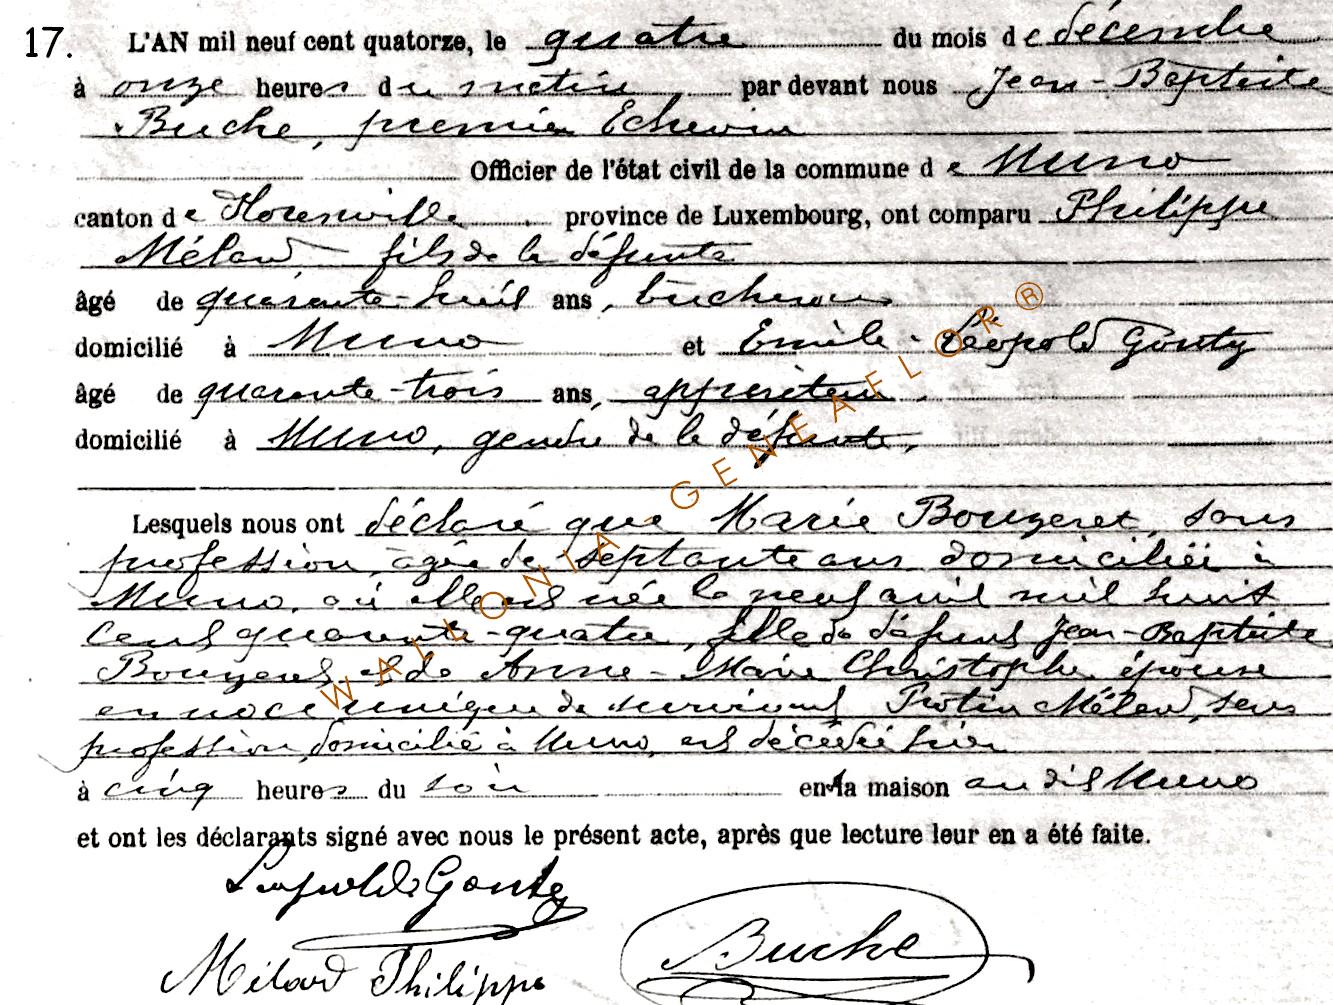 17. L'AN mil neuf cent quatorze, le quatre du mois de décembre
à onze heures du matin, par devant nous Jean-Baptiste
Buche, premier Echevin
Officier de l'état civil de la commune de Muno
canton de Florenville province de Luxembourg, ont comparu Philippe
Mélard fils de la défunte
âgé de quarante-huit ans, bucheron
domicilié à Muno et Emile-Léopold Gouty
âgé de quarante-trois ans, apprêteur
domicilié à Muno, gendre de la défunte,
Lesquels nous ont déclaré que Marie Bouzeret, sans
profession, agée de septante ans domiciliée à
Muno, où elle est née le neuf avril mil huit
cent quarante-quatre, fille de défunt Jean-Baptiste
Bouzeret et de Anne-Marie Christophe épouse
en noce unique de survivant Protin Mélard, sans
profession, domicilié à Muno, est décédée hier
à cinq heures du soir en la maison au dit Muno
et ont les déclarants signé avec nous le présent acte, après que lecture leur en a été faite.
Leopold Gouty
Mélard Philippe Buche
WALLONIA GENEAFLOR®